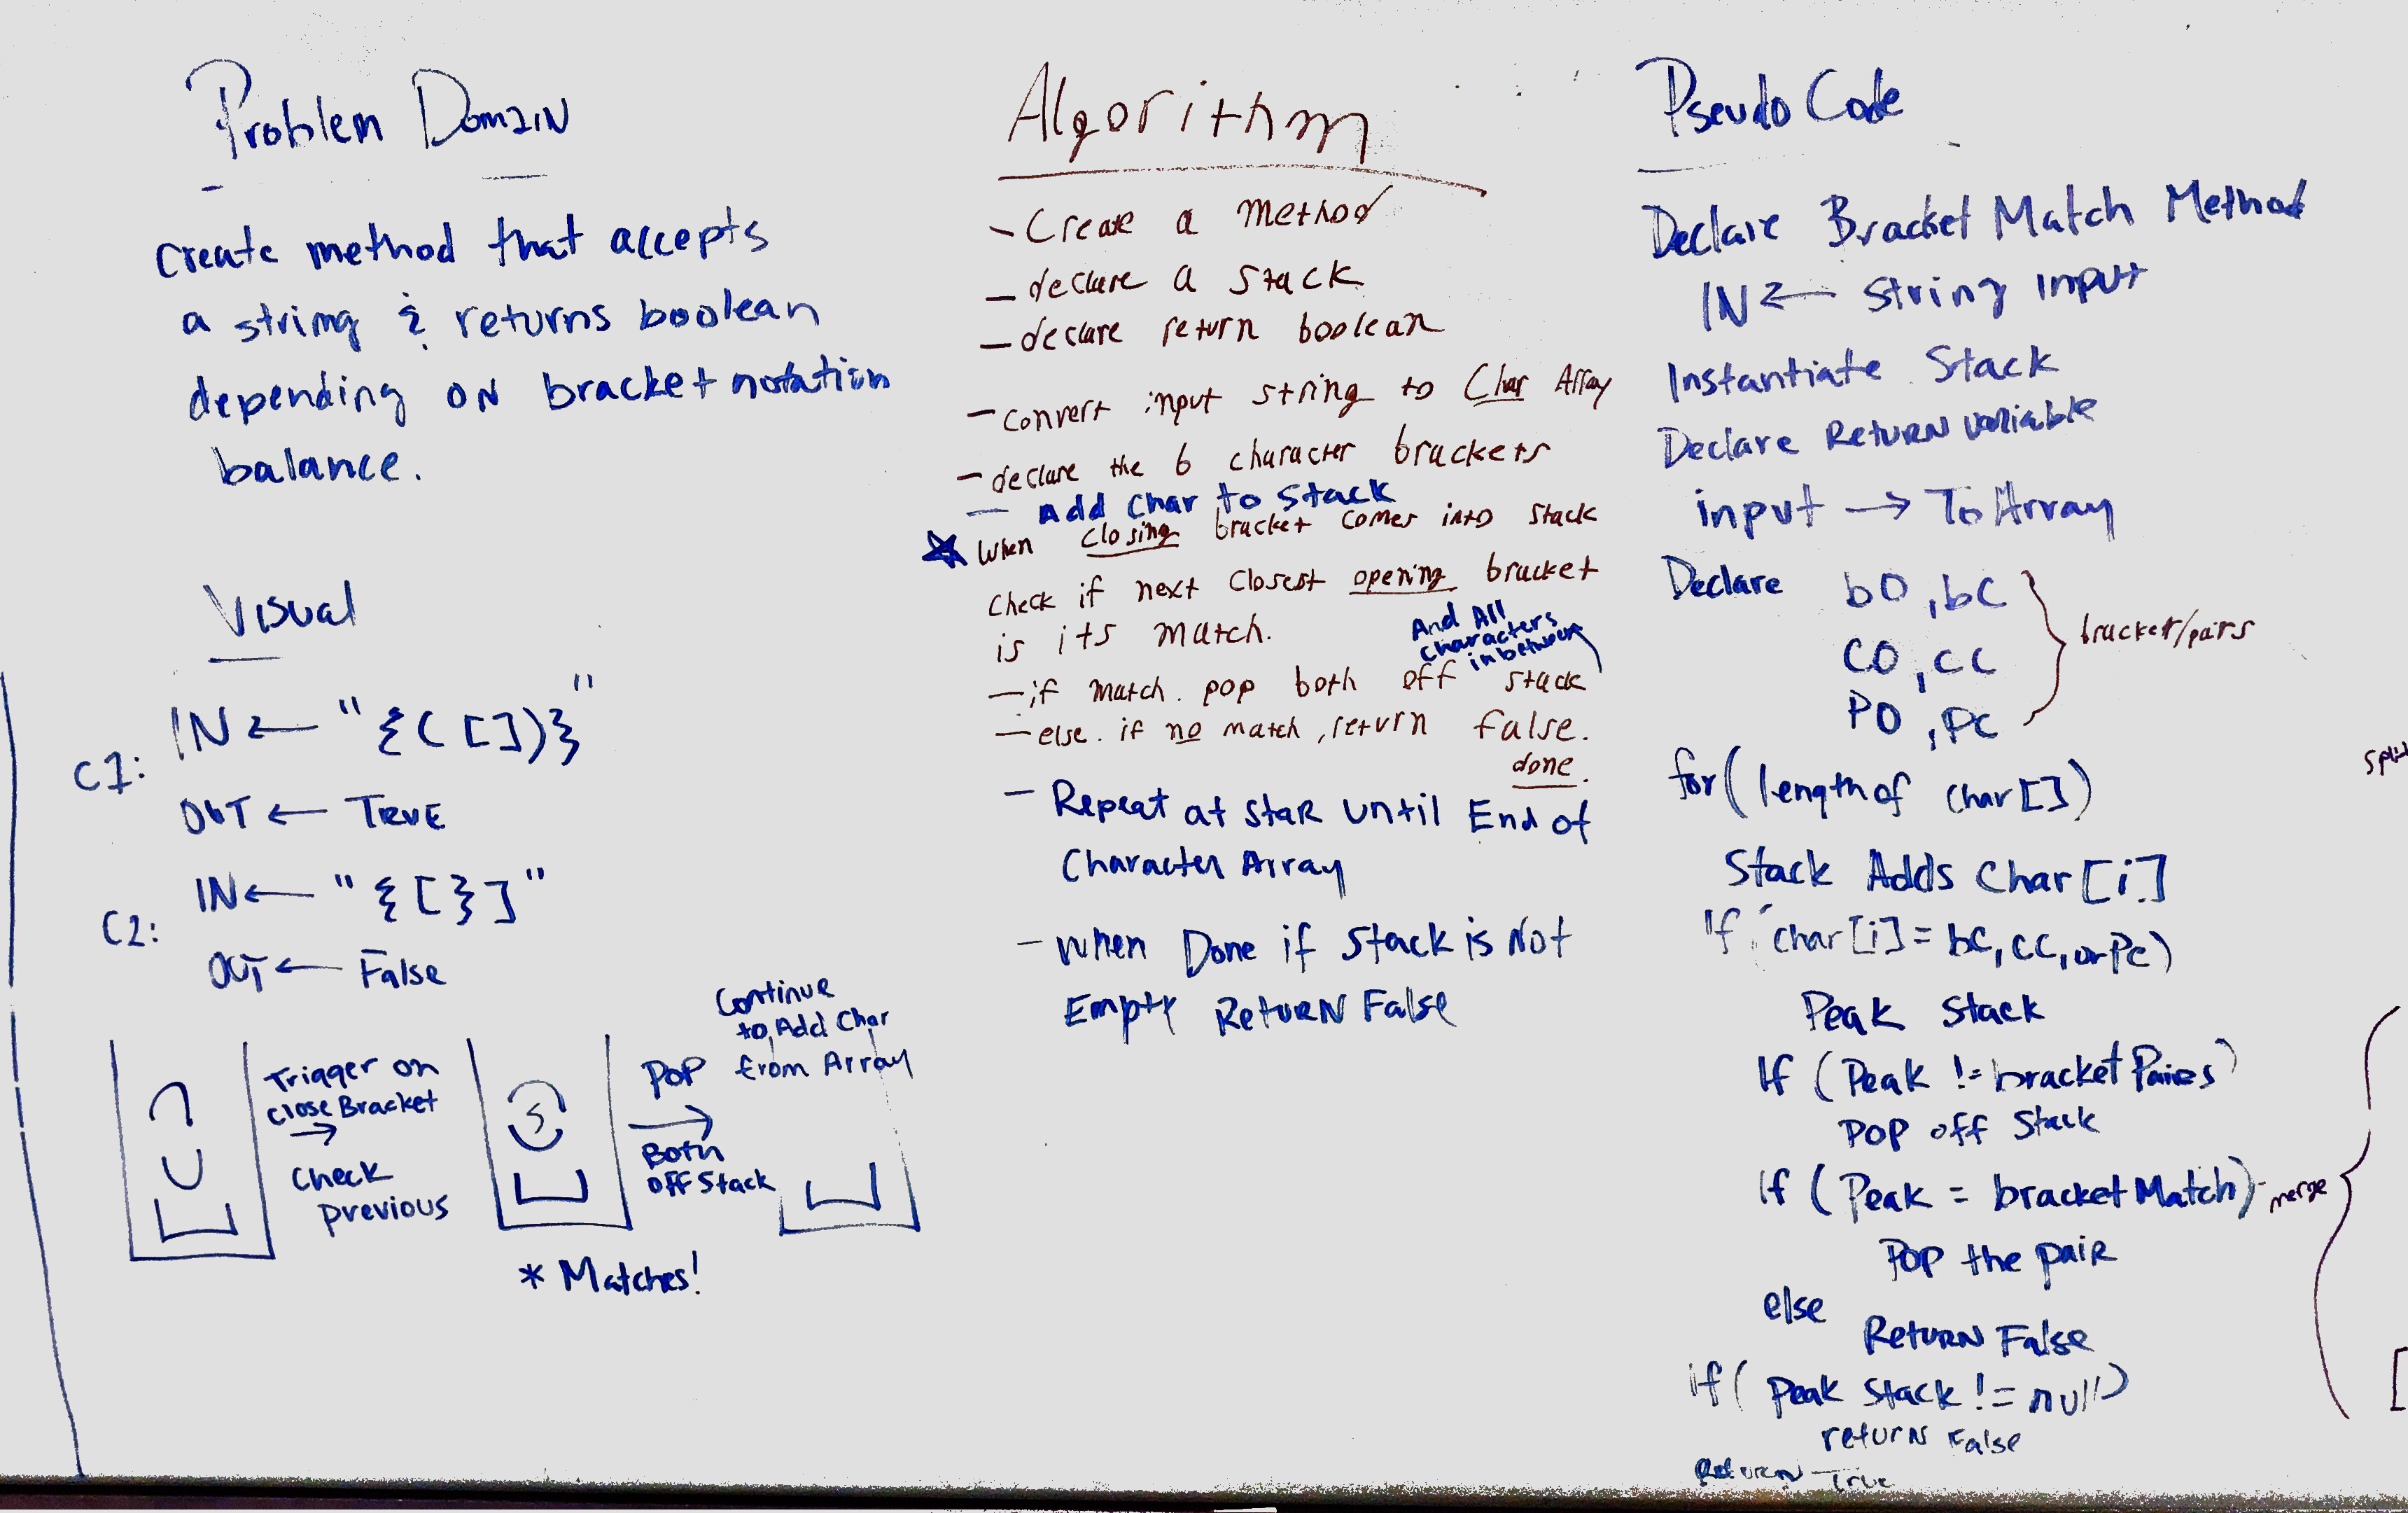 Problem Domain
Create method that accepts
a string & returns boolean
depending on bracket notation
balance.
Visual
C1:
IN ← "{([])}"
OUT ← TRUE
C2:
IN ← "{[}]"
OUT ← False
Trigger on
close Bracket
→
Check
previous
* Matches!
POP
→
Both
off Stack
Continue
to Add Char
from Array
Algorithm
- Create a method
- declare a stack
- declare return boolean
- convert input string to Char Array
- declare the 6 character brackets
- Add Char to Stack
★ When closing bracket comes into stack
check if next closest opening bracket
is its match.
And All
characters
inbetween
- if match. pop both off stack
- else. if no match, return false.
done.
- Repeat at staR until End of
Character Array
- When Done if stack is Not
Empty Return False
Pseudo Code
Declare Bracket Match Method
IN ← string input
Instantiate Stack
Declare Return variable
input → To Array
Declare bO, bC
CO, CC
PO, PC
bracket/pairs
for (length of char[])
Stack Adds Char[i]
If char[i] = bC, CC, or PC)
Peak Stack
If (Peak != bracket Paires)
POP off Stack
If (Peak = bracket Match) - merge
Pop the pair
else
Return False
if (Peak Stack != null)
return False
Return True
[